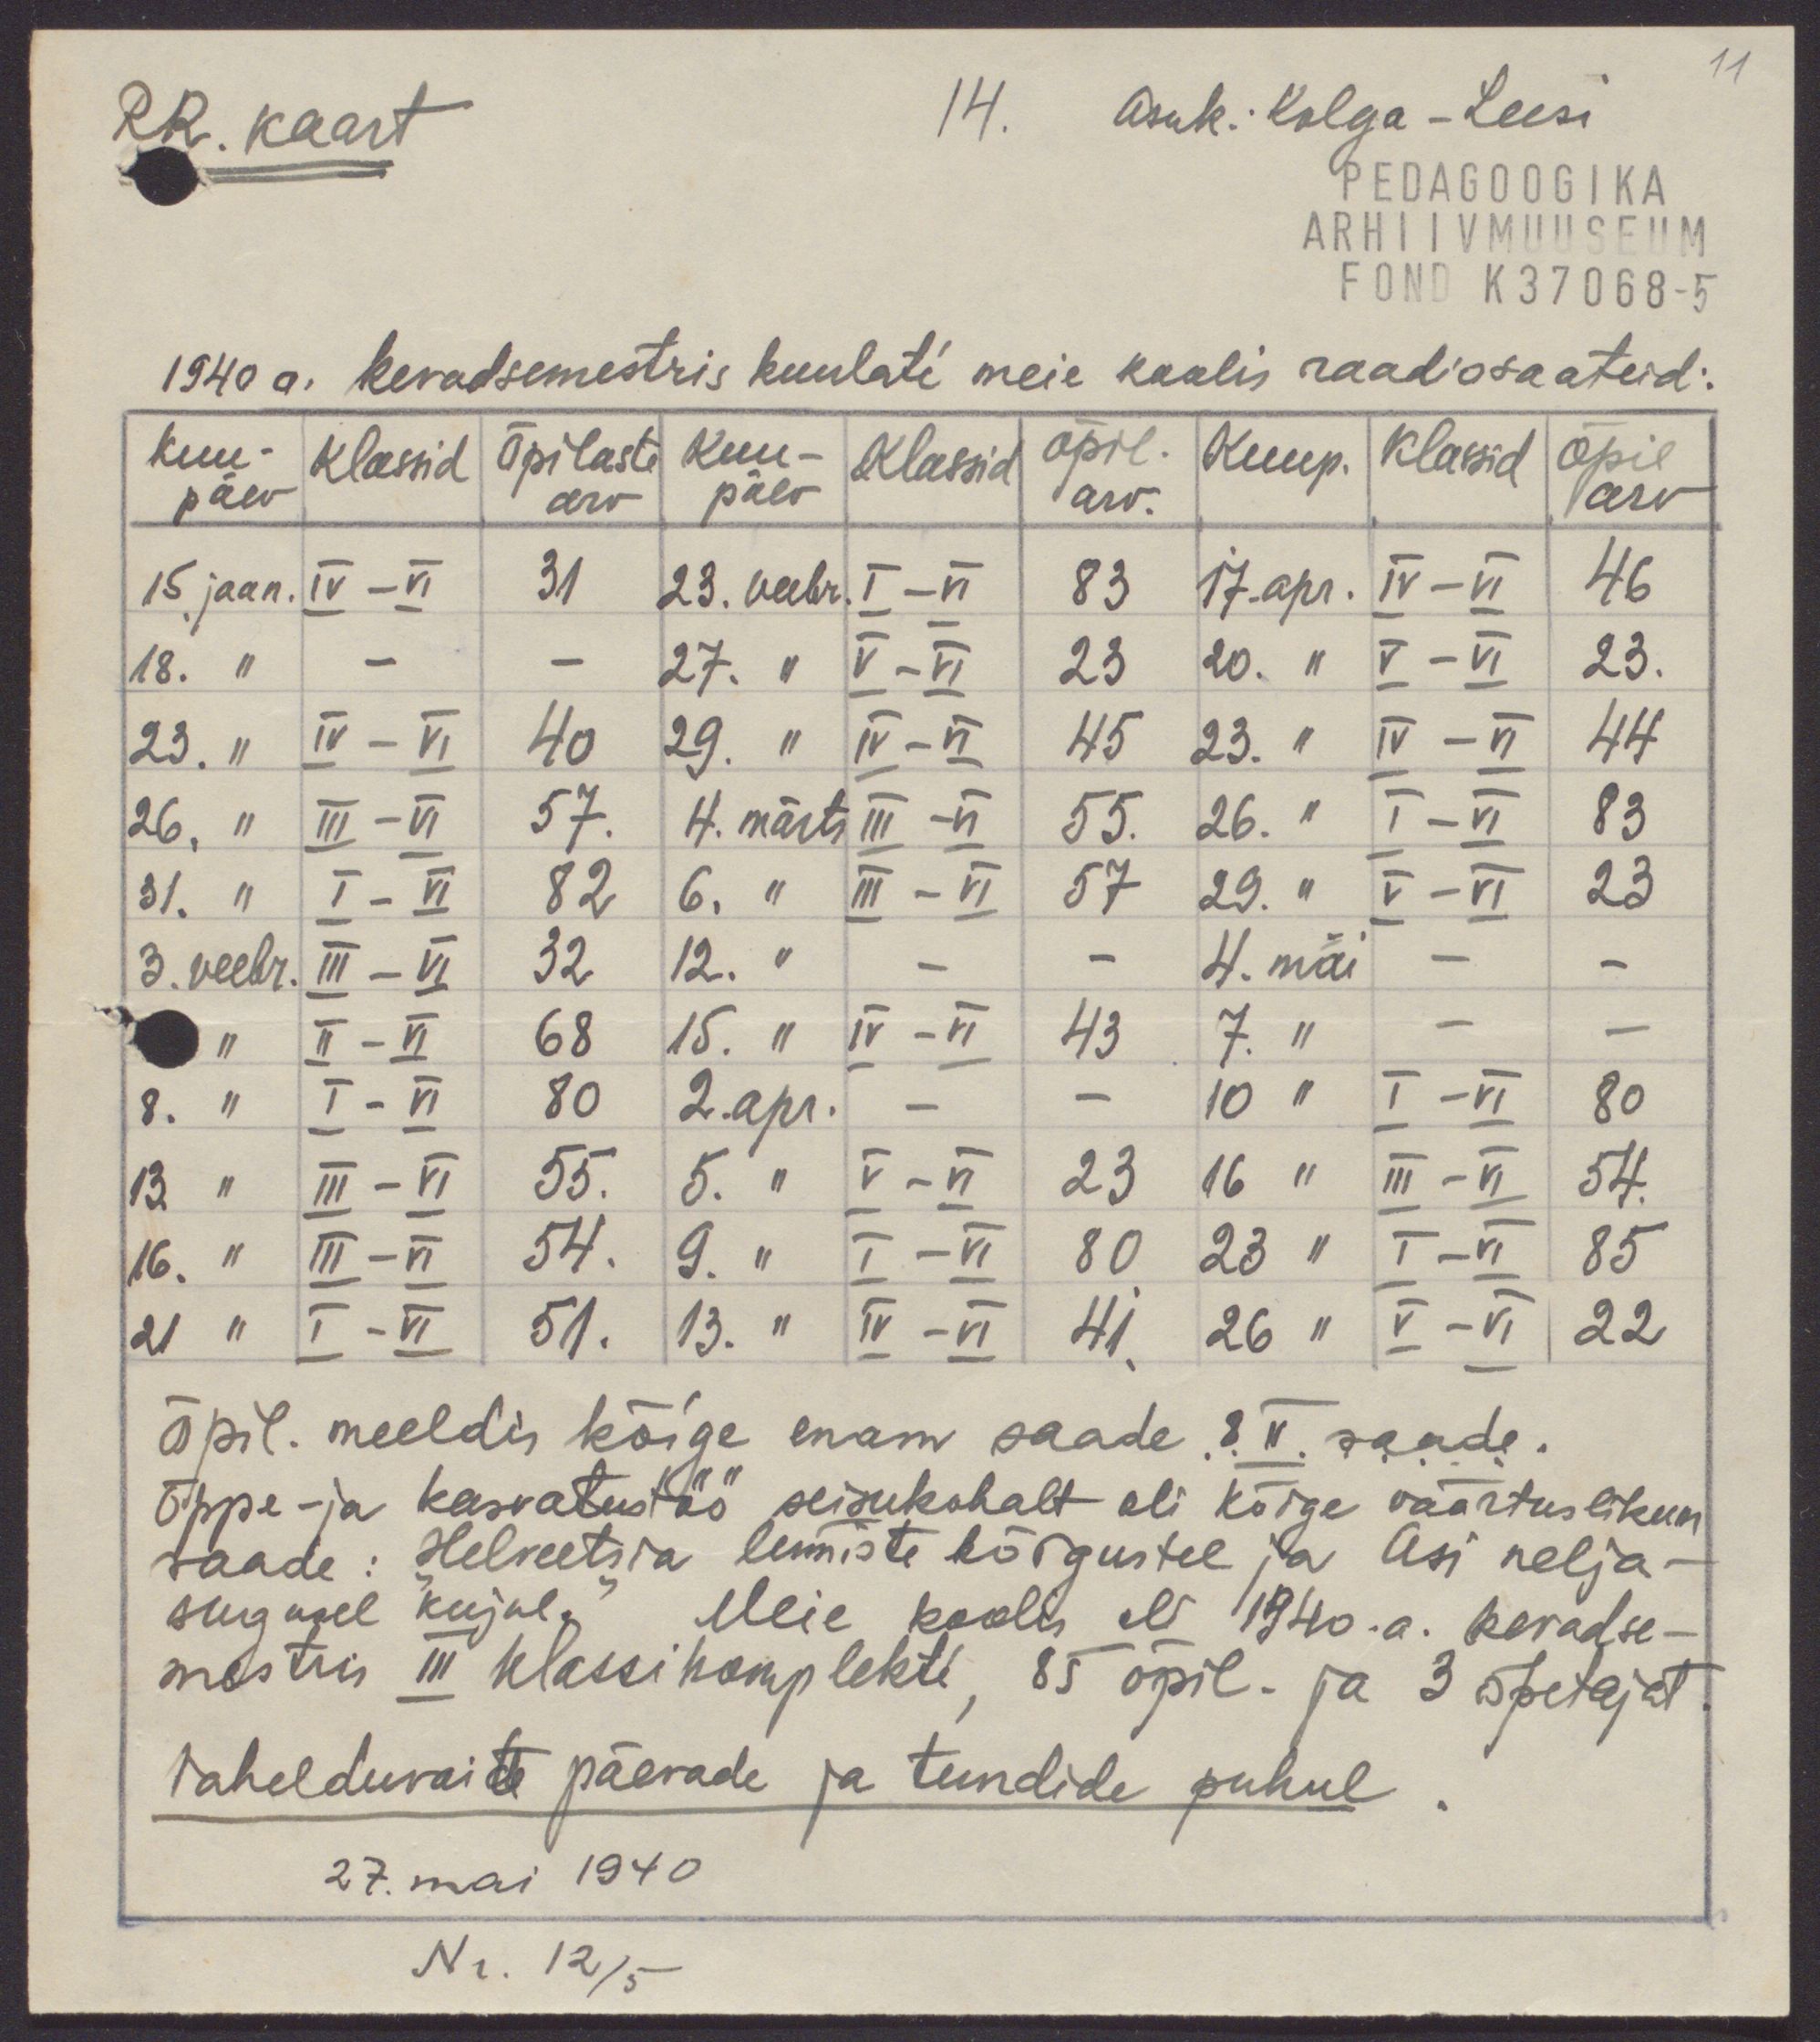 11
RR. kaart 14. Asuk.: Kolga-Leesi
PEDAGOOGIKA
ARHIIVMUUSEUM
FOND K37068-5
1940 a. kevadsemestris kuulati meie koolis raadiosaateid:
Kuu-päev Klassid Õpilaste arv Kuu-päev Klassid Õpil. arv. Kuup. Klassid Õpil arv
15. jaan. IV - VI 31 23. veebr. I - VI 83 17. apr. IV - VI 46
18. " - - 27. " V - VI 23 20. " V - VI 23.
23. " IV - VI 40 29. " IV - VI 45 23. " IV - VI 44
26. " III - VI 57. 4. märts III - VI 55. 26. " I - VI 83
31. " I - VI 82 6. " III - VI 57 29. " V - VI 23
3. veebr. III - VI 32 12. " - - 4. mai - -
" II - VI 68 15. " IV - VI 43 7. " - -
8. " I - VI 80 2. apr. - - 10 " I - VI 80
13 " III - VI 55. 5. " V - VI 23 16 " III - VI 54.
16. " III - VI 54. 9. " I - VI 80 23 " I - VI 85
21 " I - VI 51. 13. " IV - VI 41. 26 " V - VI 22
Õpil. meeldis kõige enam saade 8. II. saade.
Õppe-ja kasvatustöö seisukohalt oli kõige väärtuslikum
saade: „Helveetsia lumiste kõrgustel" ja „Asi nelja-
sugusel kujul." Meie koolis oli 1940.a. kevadse-
mestris III klassikomplekti, 85 õpil. ja 3 õpetajat.
Vahelduvaite päevade ja tundide puhul.
27. mai 1940
Nr. 12/5